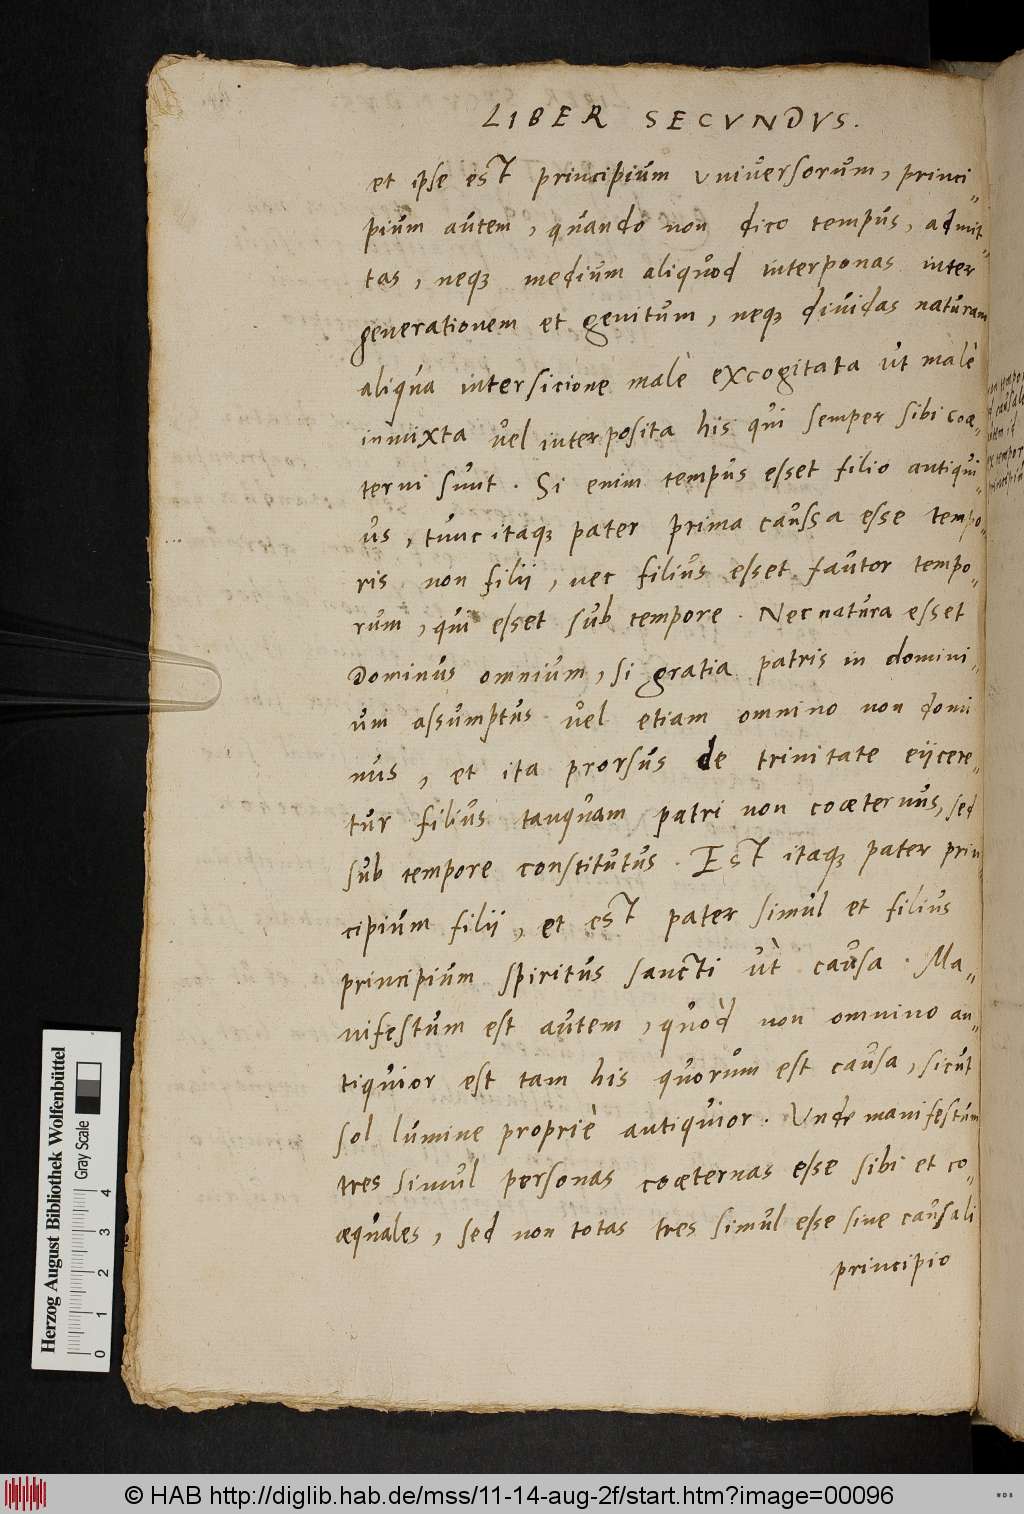 LIBER SECVNDVS.
et ipse est principium vniversorum, princi„
pium autem, quando non dico tempus, admit„
tas, neqꝫ medium aliquod interponas inter
generationem et genitum, neqꝫ diuidas naturam
aliqua intersicione malè excogitata ut malè
inmixta vel interposita his qui semper sibi coæ„
terni sunt. Si enim tempus esset filio antiqui„
us, tunc itaqꝫ pater prima caussa esse tempo„
ris non filii, nec filius esset fautor tempo„
rum, qui esset sub tempore. Nec natura esset
Dominus omnium, si gratia patris in domini„
um assumptus vel etiam omnino non domi
nus, et ita prorsus de trinitate eijcere„
tur filius tanquam patri non coæternus, sed
sub tempore constitutus. Est itaqꝫ pater prin
cipium filii, et est pater simul et filius
principium spiritus sancti ut causa. Ma„
nifestum est autem, quòd non omnino an„
tiquior est tam his quorum est causa, sicut
sol lumine propriè antiquior. Unde manifestum
tres simul personas coæternas esse sibi et co„
æquales, sed non totas tres simul esse sine causali
principio
Herzog August Bibliothek Wolfenbüttel
Gray Scale
0 1 2 3 4
© HAB http://diglib.hab.de/mss/11-14-aug-2f/start.htm?image=00096